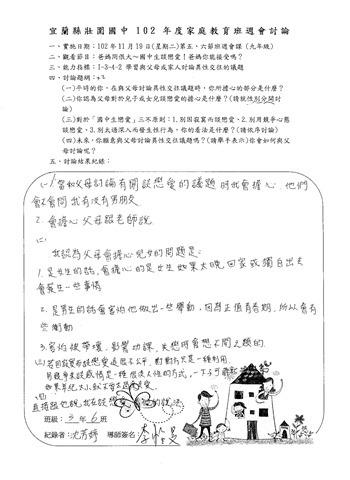 宜蘭縣壯圍國中 102 年度家庭教育班週會討論
一、實施日期：102 年 11 月 19 日(星期二)第五、六節班週會課（九年級）
二、觀看節目：爸媽冏很大～國中生談戀愛！爸媽你能接受嗎？
三、能力指標：1-3-4-2 學習與父母或家人討論異性交往的議題
四、討論題綱：
(一)平時的你，在與父母討論異性交往議題時，你所擔心的部分是什麼？
(二)你認為父母對於兒子或女兒談戀愛的擔心是什麼？(請就性別分開討
論)
(三)對於「國中生戀愛」三不原則：1.別因寂寞而談戀愛、2.別用競爭心態
談戀愛、3.別太過深入而發生性行為，你的看法是什麼？(請依序討論)
(四)未來，你願意與父母討論異性交往議題嗎？(請舉手表示)你會如何與父
母討論呢？
五、討論結果紀錄：
(一)1.當和父母討論有關談戀愛的議題時就會擔心，他們
會會問我有沒有男朋友
2.會擔心父母跟老師說
(二)
我認為父母會擔心兒女的問題是：
1.是女生的話，會擔心的是女生如果太晚回家或獨自出去
會發生一些事情
2.是男生的話會害怕他做出一些舉動，因為正值青春期，所以會有
些衝動
3.害怕被帶壞、影響功課、失戀時會想不開之類的
(三)若因寂寞而談戀愛這很不公平，對對方只是一種利用
(四)
直接跟他說
班級：3 年 6 班
紀錄者：沈 導師簽名：李